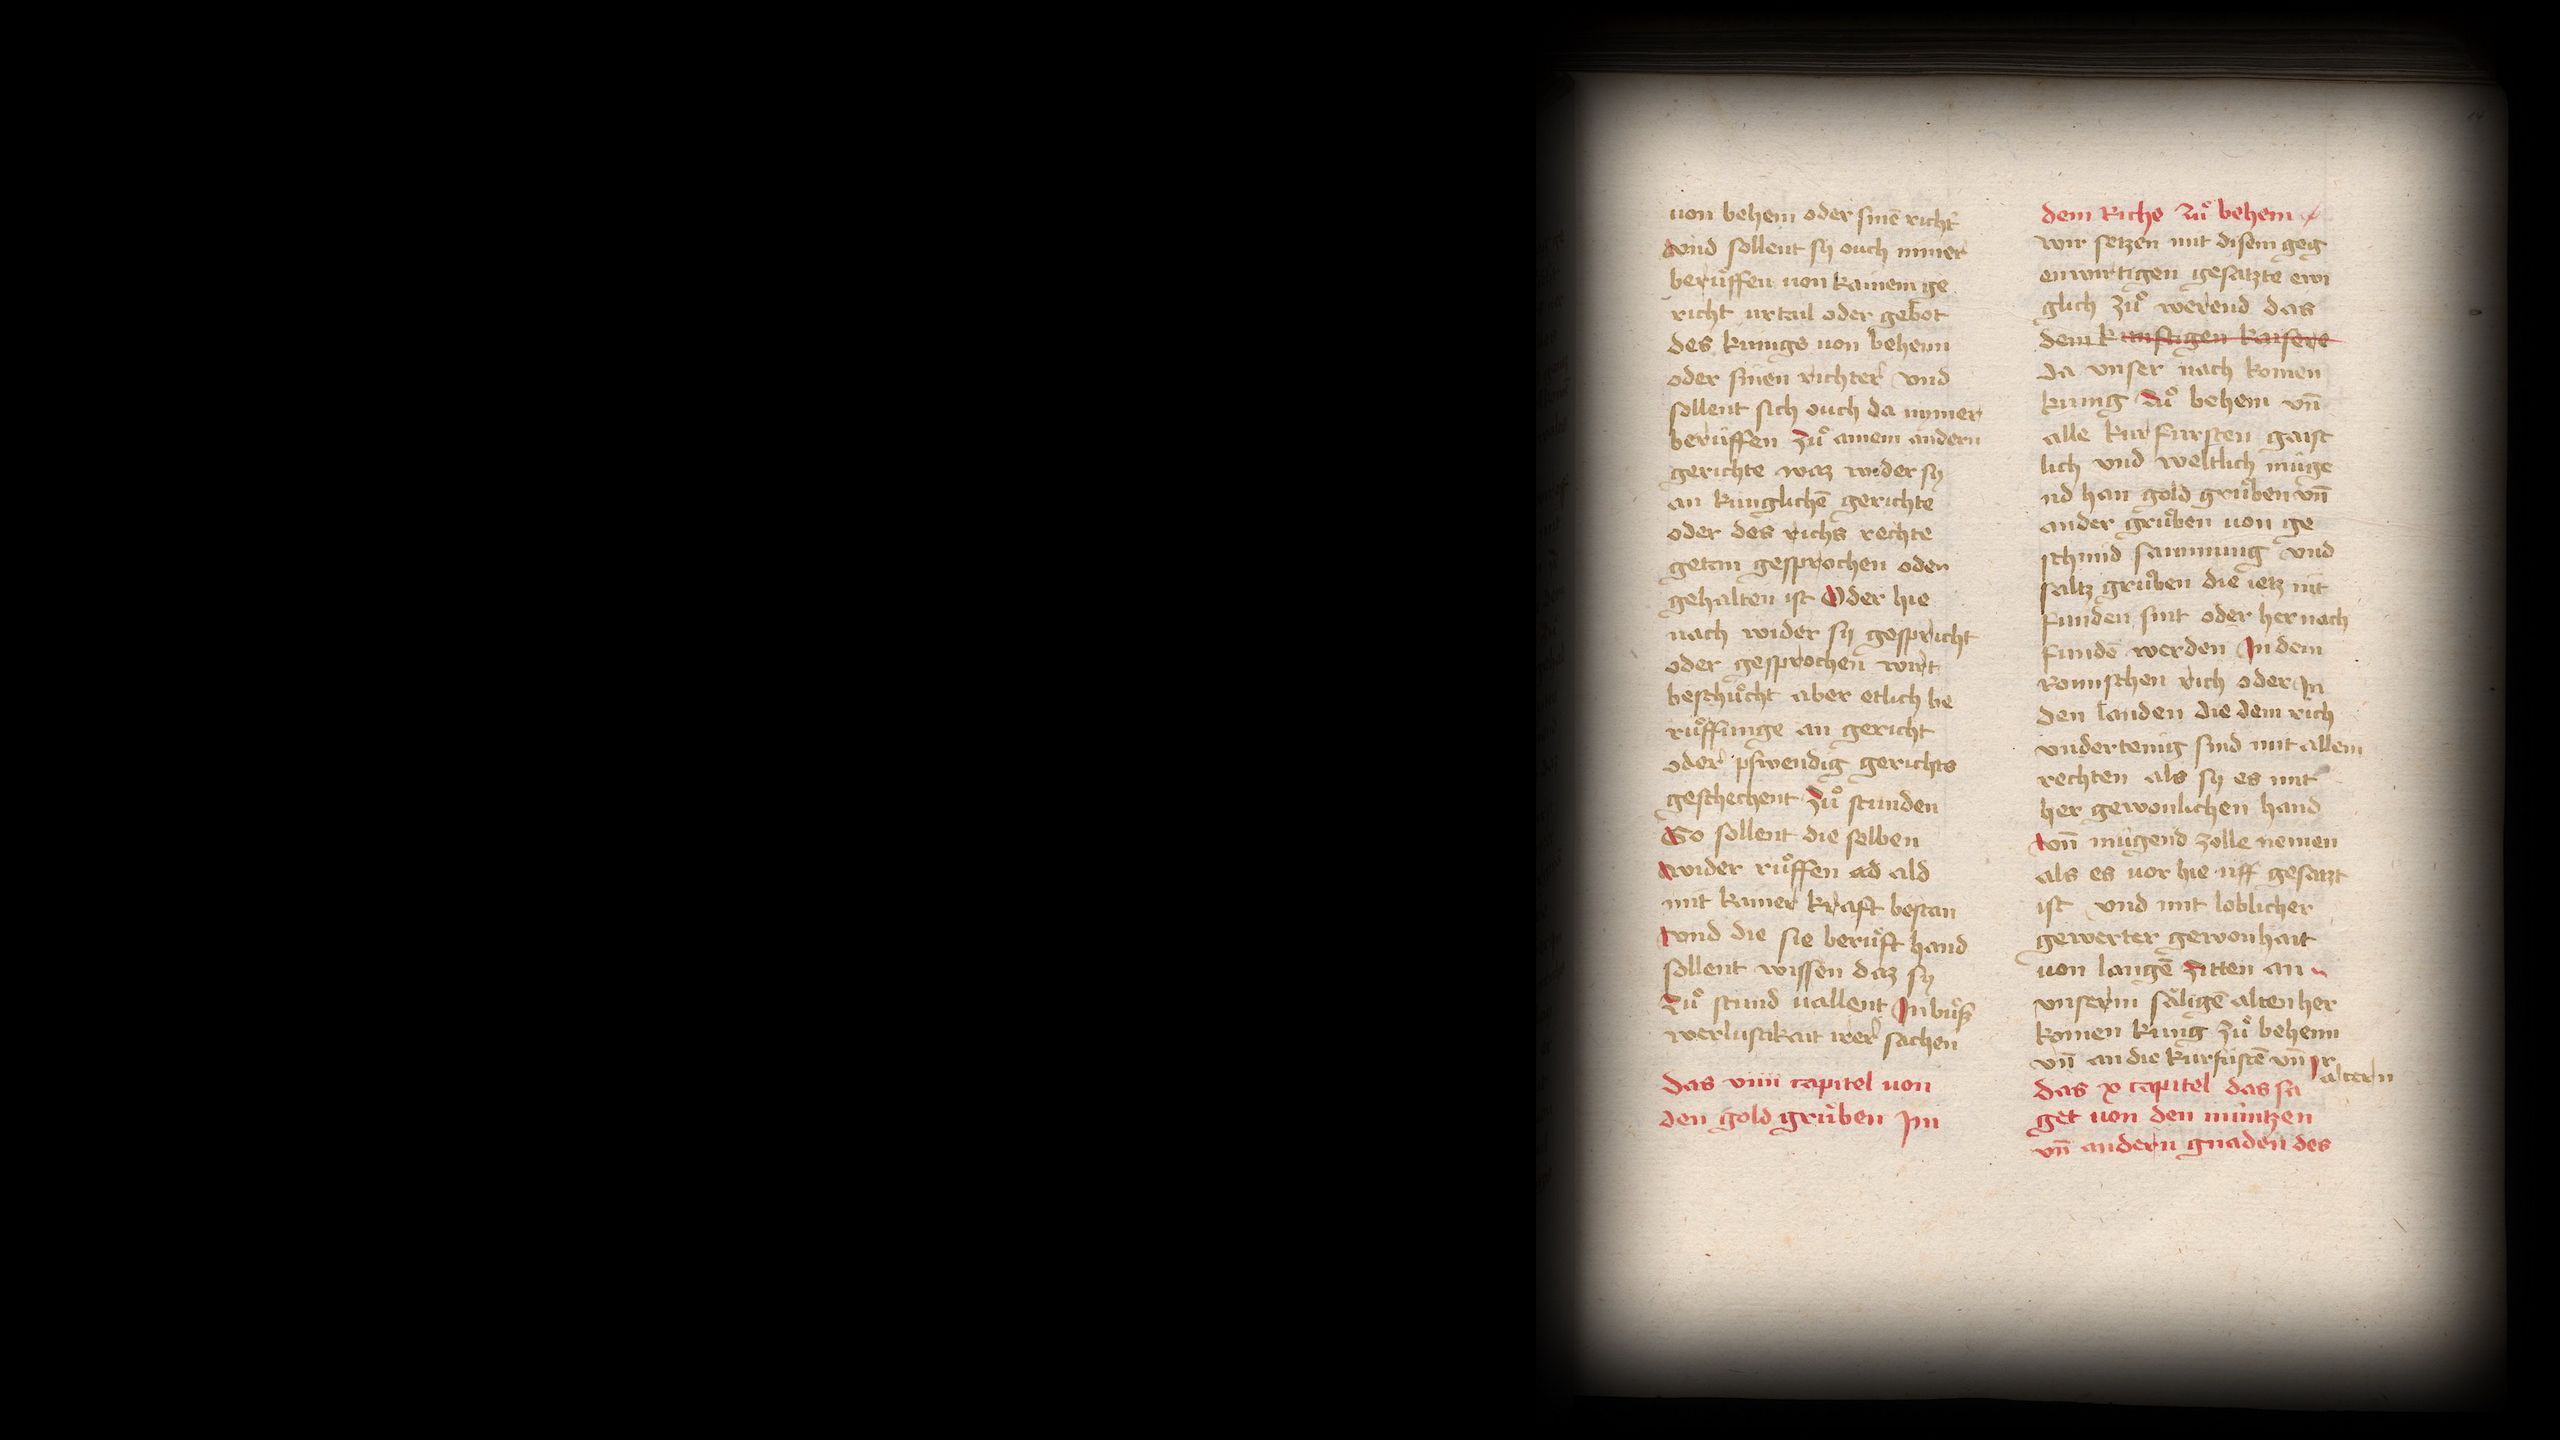 von behem oder sinē richt
vnd sollent sy ouch nimer
berůffen von kainem ge
richt urtail oder gebot
des kunigs von behem
oder sinen richter vnd
sollent sich ouch da nymer
berůffen zů ainem andern
gerichte waz wider sy
an kunglichē gerichte
oder des richs rechte
getan gesprochen oder
gehalten ist Oder hie
nach wider sy gespricht
oder gesprochen wirt
beschücht aber etlich be
růffunge an gericht
oder gerichts
geschechent zů stunden
So sollent die selben
wider růffen ad ald
mit kainer kraft bestan
vnd die sie berůft hand
sollent wissen daz sy
zů stund vallent In bůß
werlustikait irer sachen
das viiii capitel von
den gold grůben Im
dem Riche zů behem
wir setzen mit disem geg
enwirtigen gesatzte ewi
glich zů werend das
dem kunftigen kaisere
da vnser nach komen
kunig zů behem vñ
alle kurfursten gaist
lich vnd weltlich müge
nd han gold grůben vñ
ander grůben von ge
schmid sammung vnd
saltz grůben die ietz nit
funden sint oder her nach
fundē werden In dem
romischen rich oder In
den landen die dem rich
vndertenig sind mit allem
rechten als sy es mit
her gewonlichen hand
vñ mügend zolle nemen
als es vor hie uff gesatzt
ist vnd mit loblicher
gewerter gewonhait
von langē zitten an
vnserm säligē alten her
komen kung zů behem
vñ an die kurfustē vñ Ir
altern
das x capitel das sa
get von den müntzen
vñ andern gnaden des